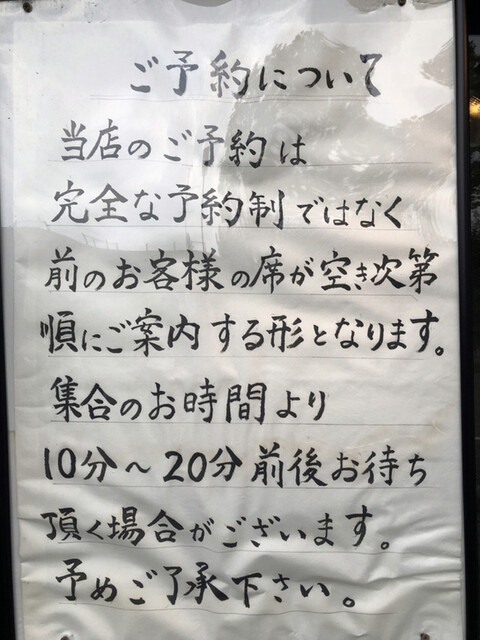 ご予約について
当店のご予約は
完全な予約制ではなく
前のお客様の席が空き次第
順にご案内する形となります。
集合のお時間より
10分～20分前後お待ち
頂く場合がございます。
予めご了承下さい。